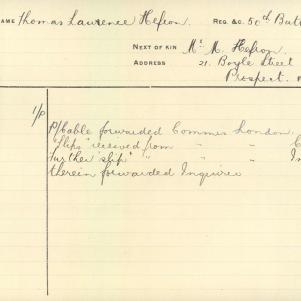 NAME Thomas Laurence Hefron REG. &c. 50th Batt
NEXT OF KIN Mr M. Hefron.
ADDRESS 21. Boyle Street
Prospect.
1/P
P/Cable forwarded Commiss London.
"Slips" received from " "
further "slip" " " "
therein forwarded Inquiries